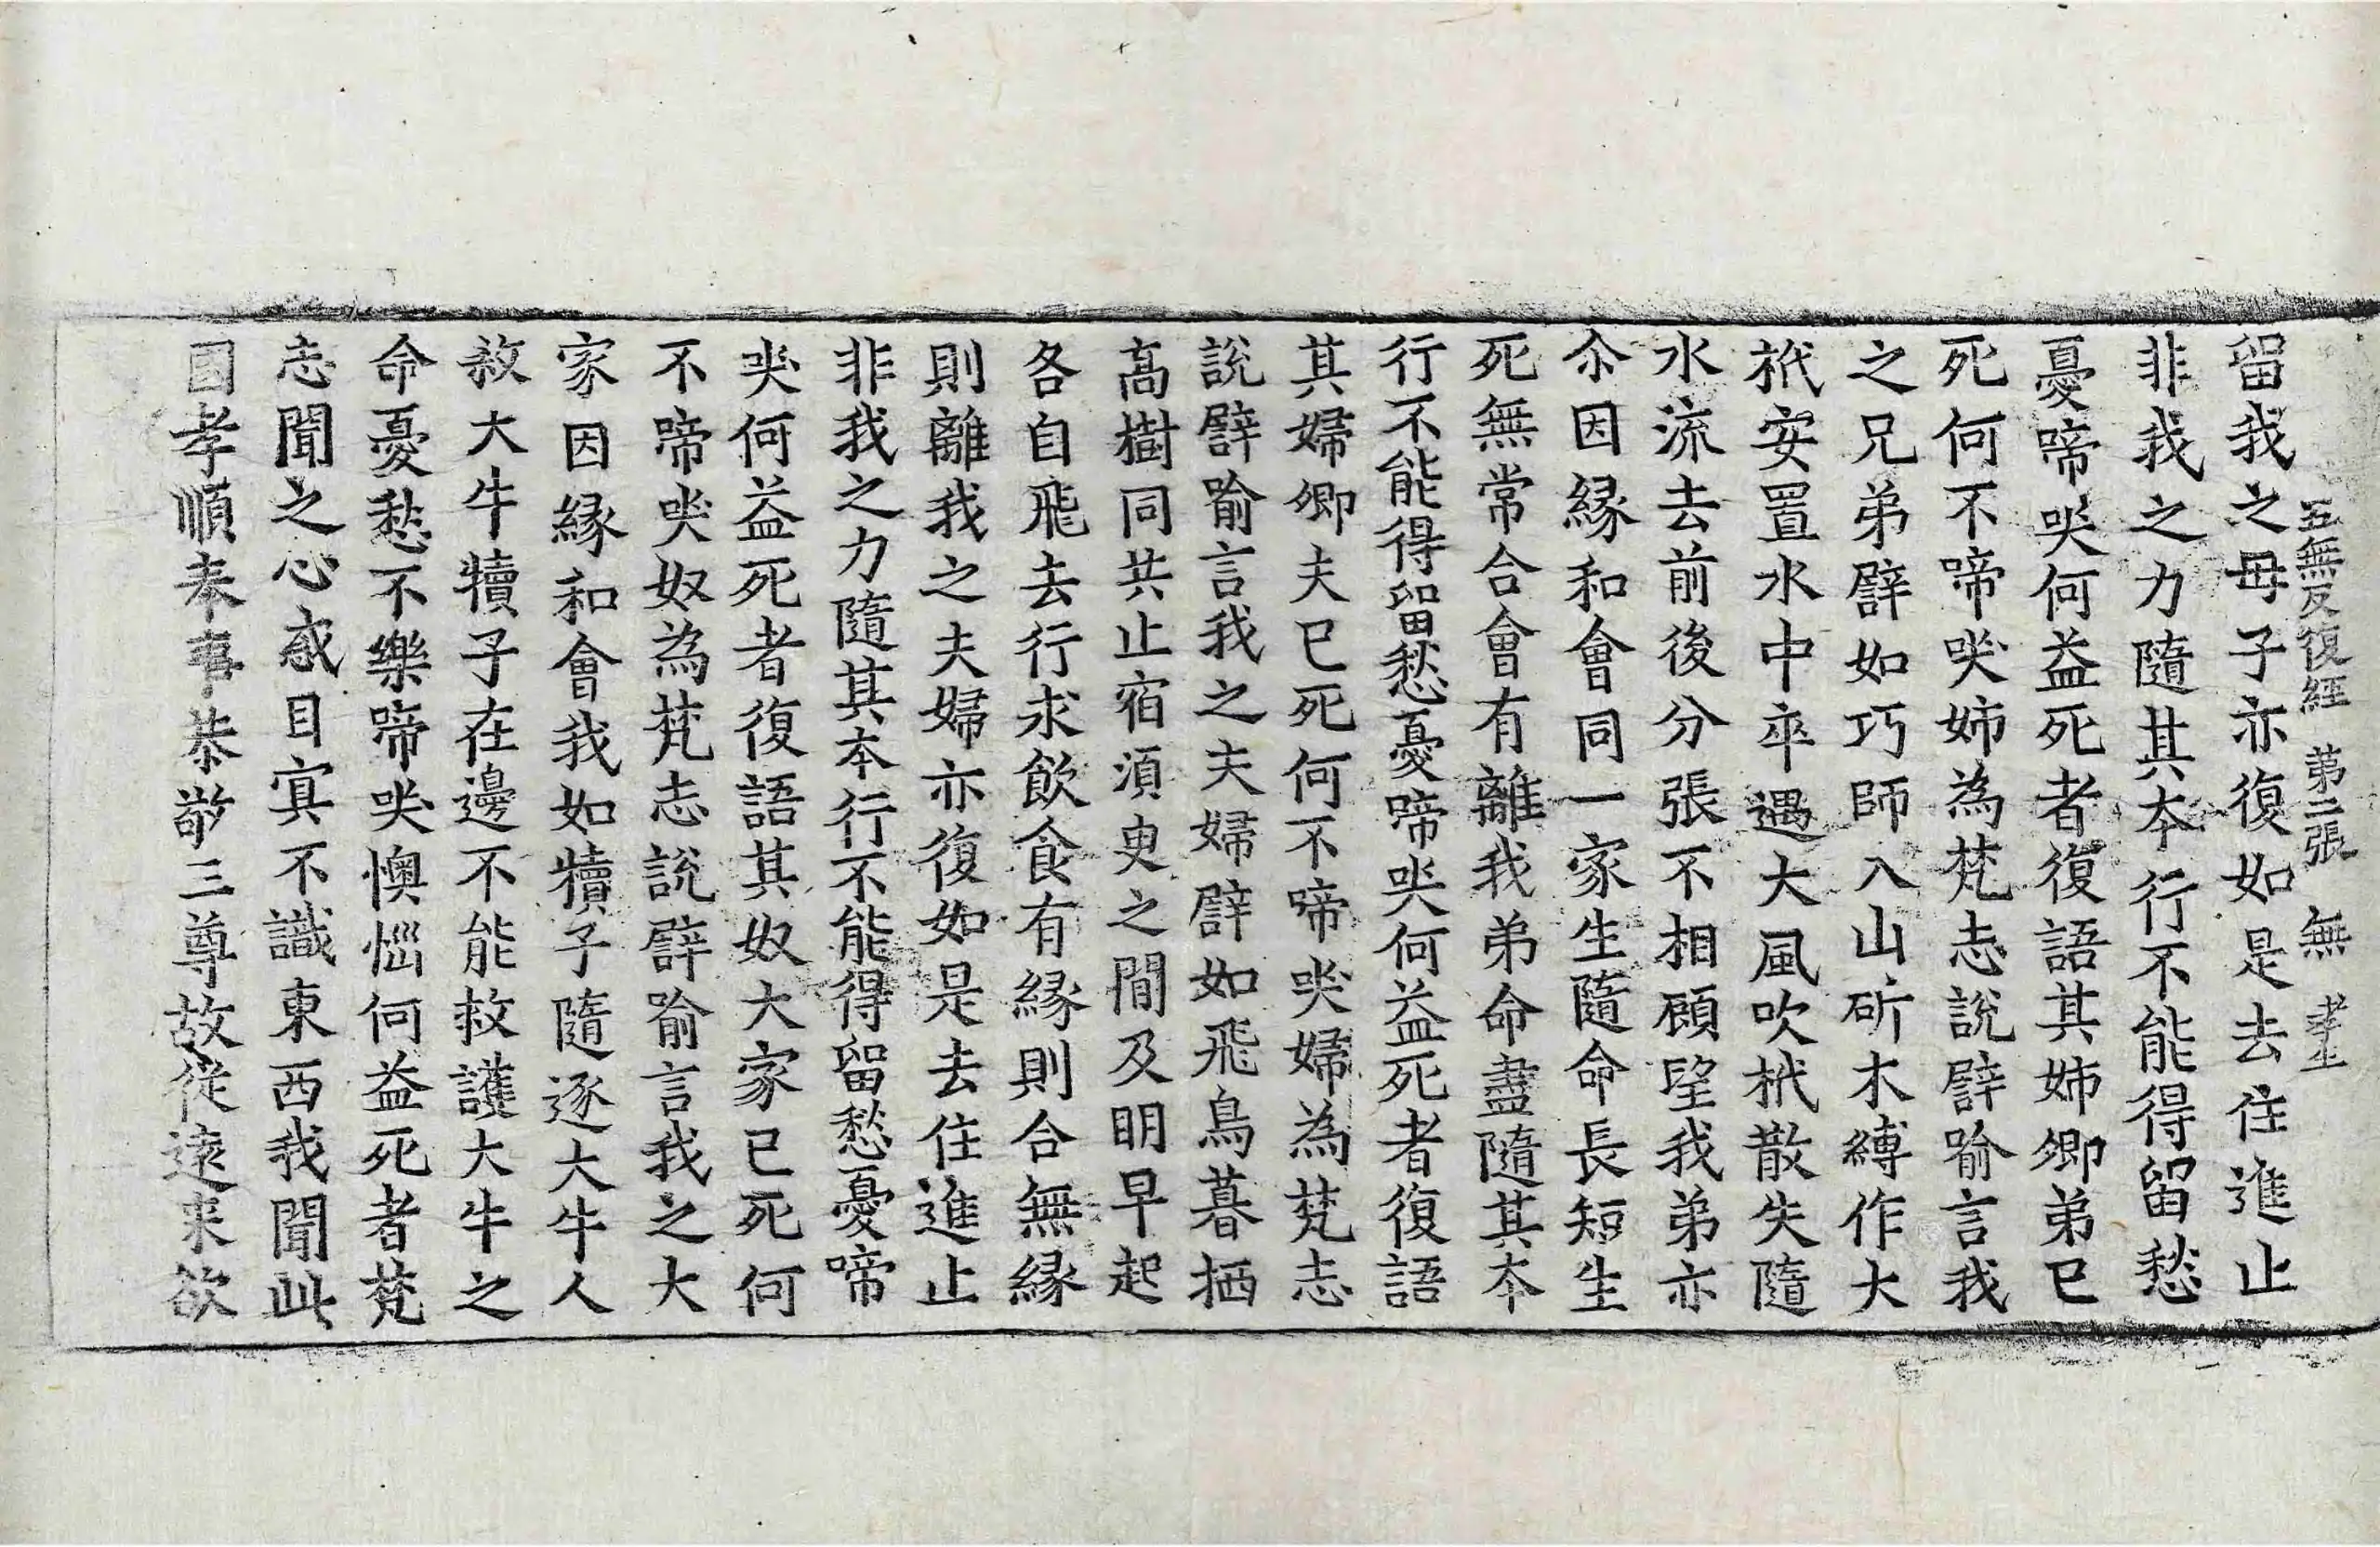 五無反復經 第二張 無
留我之母子亦復如是去住進止
非我之力隨其本行不能得留愁
憂啼哭何益死者復語其姉卿弟已
死何不啼哭姉為梵志說譬喻言我
之兄弟譬如巧師入山斫木縛作大
栰安置水中卒遇大風吹栰散失隨
水流去前後分張不相顧望我弟亦
尒因縁和會同一家生隨命長短生
死無常合會有離我弟命盡隨其本
行不能得留愁憂啼哭何益死者復語
其婦卿夫已死何不啼哭婦為梵志
說譬喻言我之夫婦譬如飛鳥暮栖
髙樹同共止宿湏臾之間及明早起
各自飛去行求飲食有縁則合無縁
則離我之夫婦亦復如是去住進止
非我之力隨其本行不能得留愁憂啼
哭何益死者復語其奴大家已死何
不啼哭奴為梵志說譬喻言我之大
家因縁和會我如犢子隨逐大牛人
煞大牛犢子在邊不能救護大牛之
命憂愁不樂啼哭懊惱何益死者梵
志聞之心感目㝠不識東西我聞此
國孝順奉事恭敬三尊故從遠来欲